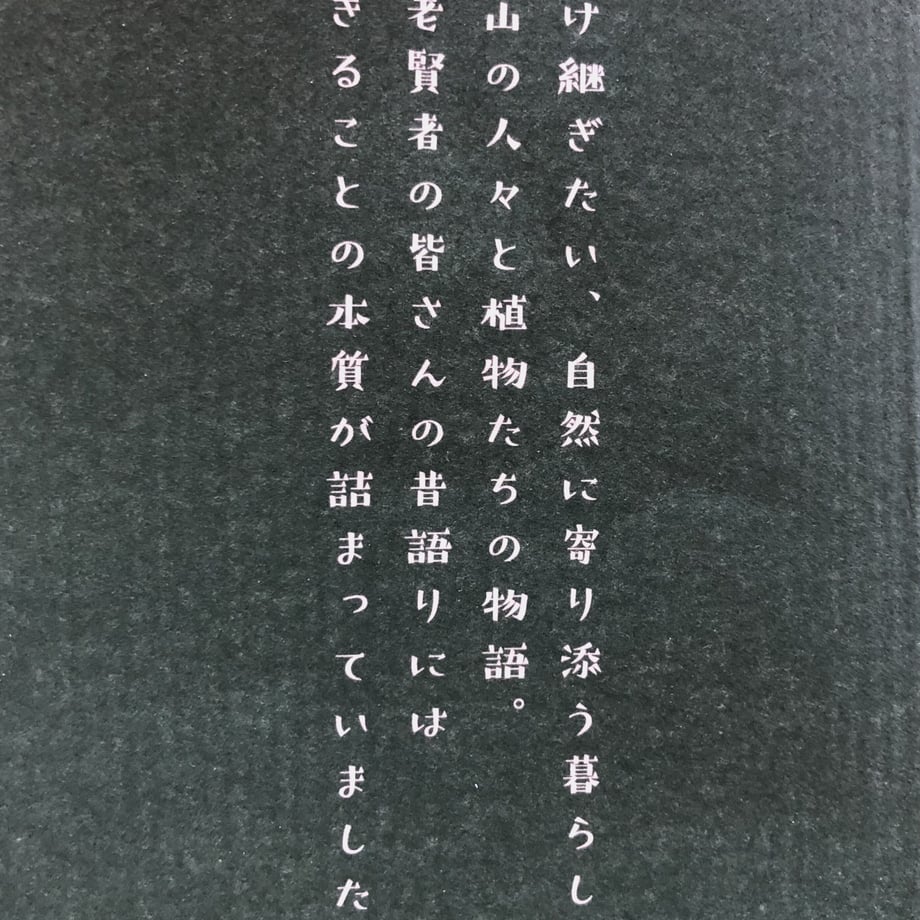 け継ぎたい、自然に寄り添う暮らし
山の人々と植物たちの物語。
老賢者の皆さんの昔語りには
きることの本質が詰まっていました